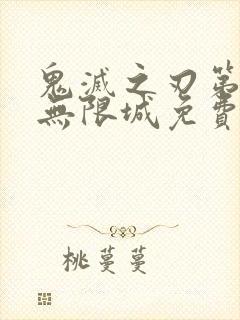 鬼滅之刃第
無限城免費
桃蔓蔓